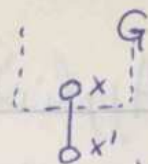 G
x
x'